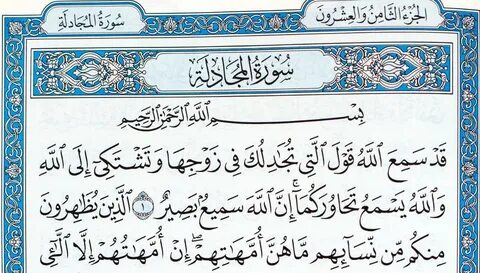 الجزء الثامن والعشرون
سورة المجادلة
سُورَةُ المُجَادلَةِ
بِسْمِ اللَّهِ الرَّحْمَٰنِ الرَّحِيمِ
قَدْ سَمِعَ ٱللَّهُ قَوْلَ ٱلَّتِى تُجَـٰدِلُكَ فِى زَوْجِهَا وَتَشْتَكِىٓ إِلَى ٱللَّهِ
وَٱللَّهُ يَسْمَعُ تَحَاوُرَكُمَآ إِنَّ ٱللَّهَ سَمِيعٌۢ بَصِيرٌ ١ ٱلَّذِينَ يُظَـٰهِرُونَ
مِنكُم مِّن نِّسَآئِهِم مَّا هُنَّ أُمَّهَـٰتِهِمْ ۖ إِنْ أُمَّهَـٰتُهُمْ إِلَّا ٱلَّـٰٓـِٔى